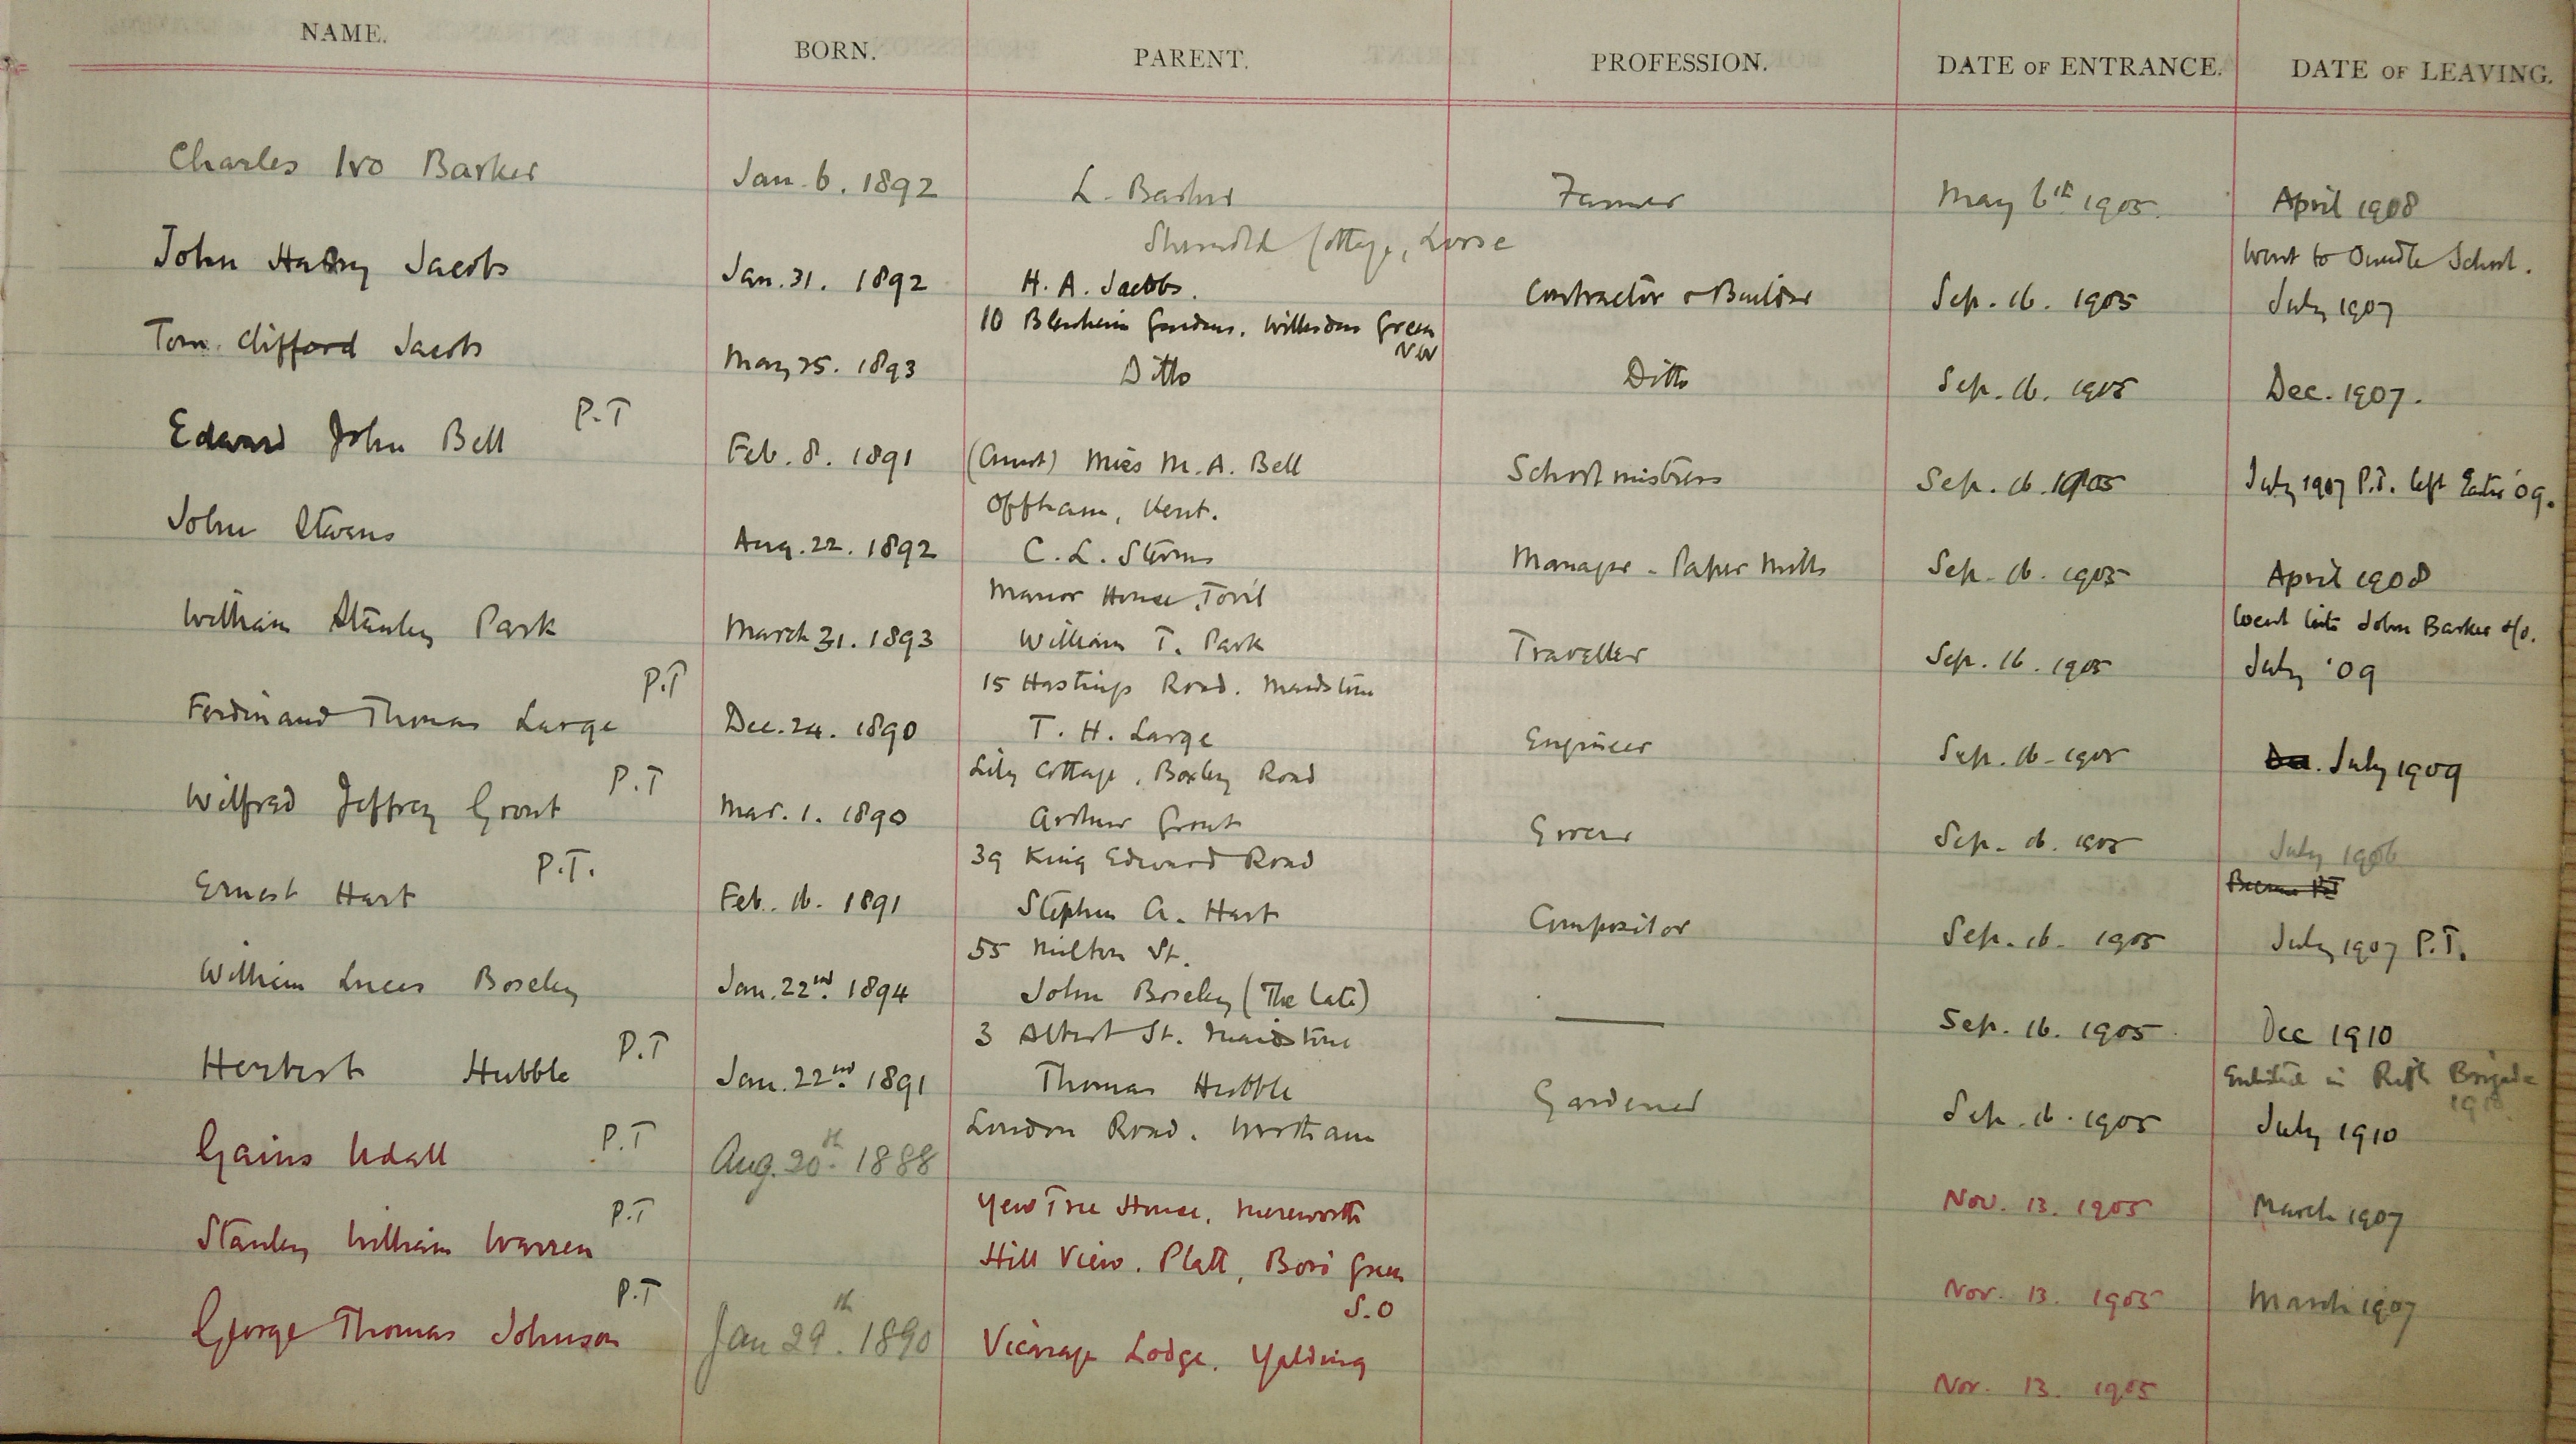 NAME. BORN. PARENT. PROFESSION. DATE OF ENTRANCE. DATE OF LEAVING.
Charles Ivo Barker Jan. 6. 1892 L. Barker Farmer May 6th 1905. April 1908
Cottage, Loose Went to Oundle School.
John Harry Jacobs Jan. 31. 1892 H. A. Jacobs. Contractor & Builder Sep. 16. 1905 July 1907
10 Blenheim Gardens. Willesden Green
NW
Tom Clifford Jacobs May 25. 1893 Ditto Ditto Sep. 16. 1905 Dec. 1907.
P.T
Edward John Bell Feb. 8. 1891 (Aunt) Miss M. A. Bell Schoolmistress Sep. 16. 1905 July 1907 P.T. left Easter '09.
Offham, Kent.
John Stevens Aug. 22. 1892 C. L. Stevens Manager - Paper Mills Sep. 16. 1905 April 1908
Manor House, Tovil went into John Barker & Co.
William Stanley Park March 31. 1893 William T. Park Traveller Sep. 16. 1905 July '09
15 Hastings Road. Maidstone
P.T
Ferdinand Thomas Large Dec. 24. 1890 T. H. Large Engineer Sep. 16. 1905 Dec. July 1909
Lily Cottage, Boxley Road
P.T
Wilfred Jeffrey Grout Mar. 1. 1890 Arthur Grout Grocer Sep. 16. 1905 July 1906
39 King Edward Road Became PT
P.T.
Ernest Hart Feb. 16. 1891 Stephen A. Hart Compositor Sep. 16. 1905 July 1907 P.T.
55 Milton St.
William Lucas Boseley Jan. 22nd. 1894 John Boseley (The late) — Sep. 16. 1905. Dec 1910
3 Albert St. Maidstone Enlisted in Rifle Brigade
P.T
Herbert Hubble Jan. 22nd. 1891 Thomas Hubble Gardener Sep. 16. 1905 July 1910
London Road. Wrotham
P.T
Gaius Udall Aug. 20th. 1888 Yew Tree House. Mereworth Nov. 13. 1905 March 1907
P.T
Stanley William Warren Hill View. Platt, Boro' Green Nov. 13. 1905 March 1907
S.O
P.T
George Thomas Johnson Jan 29th. 1890 Vicarage Lodge. Yalding Nov. 13. 1905